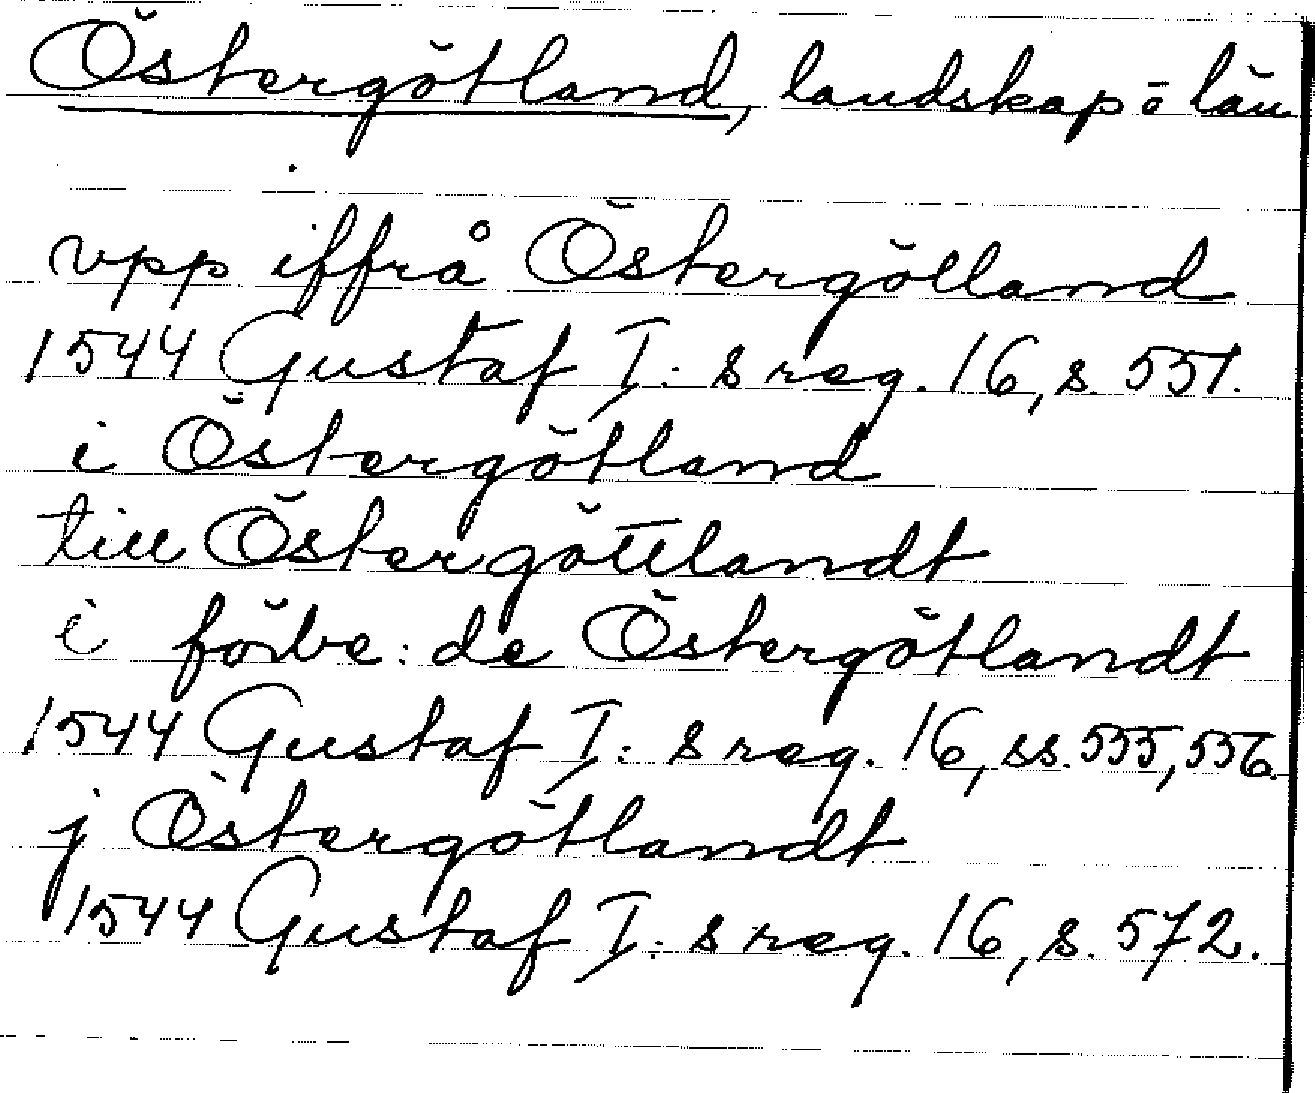 Östergötland, landskap o län
vpp iffrå Östergötland
1544 Gustaf I:s reg. 16, s. 551.
i Östergötland
till Östergöttlandt
i förbe: de Östergötlandt
1544 Gustaf I:s reg. 16, ss. 555, 556.
j Östergötlandt
1544 Gustaf I:s reg. 16, s. 572.